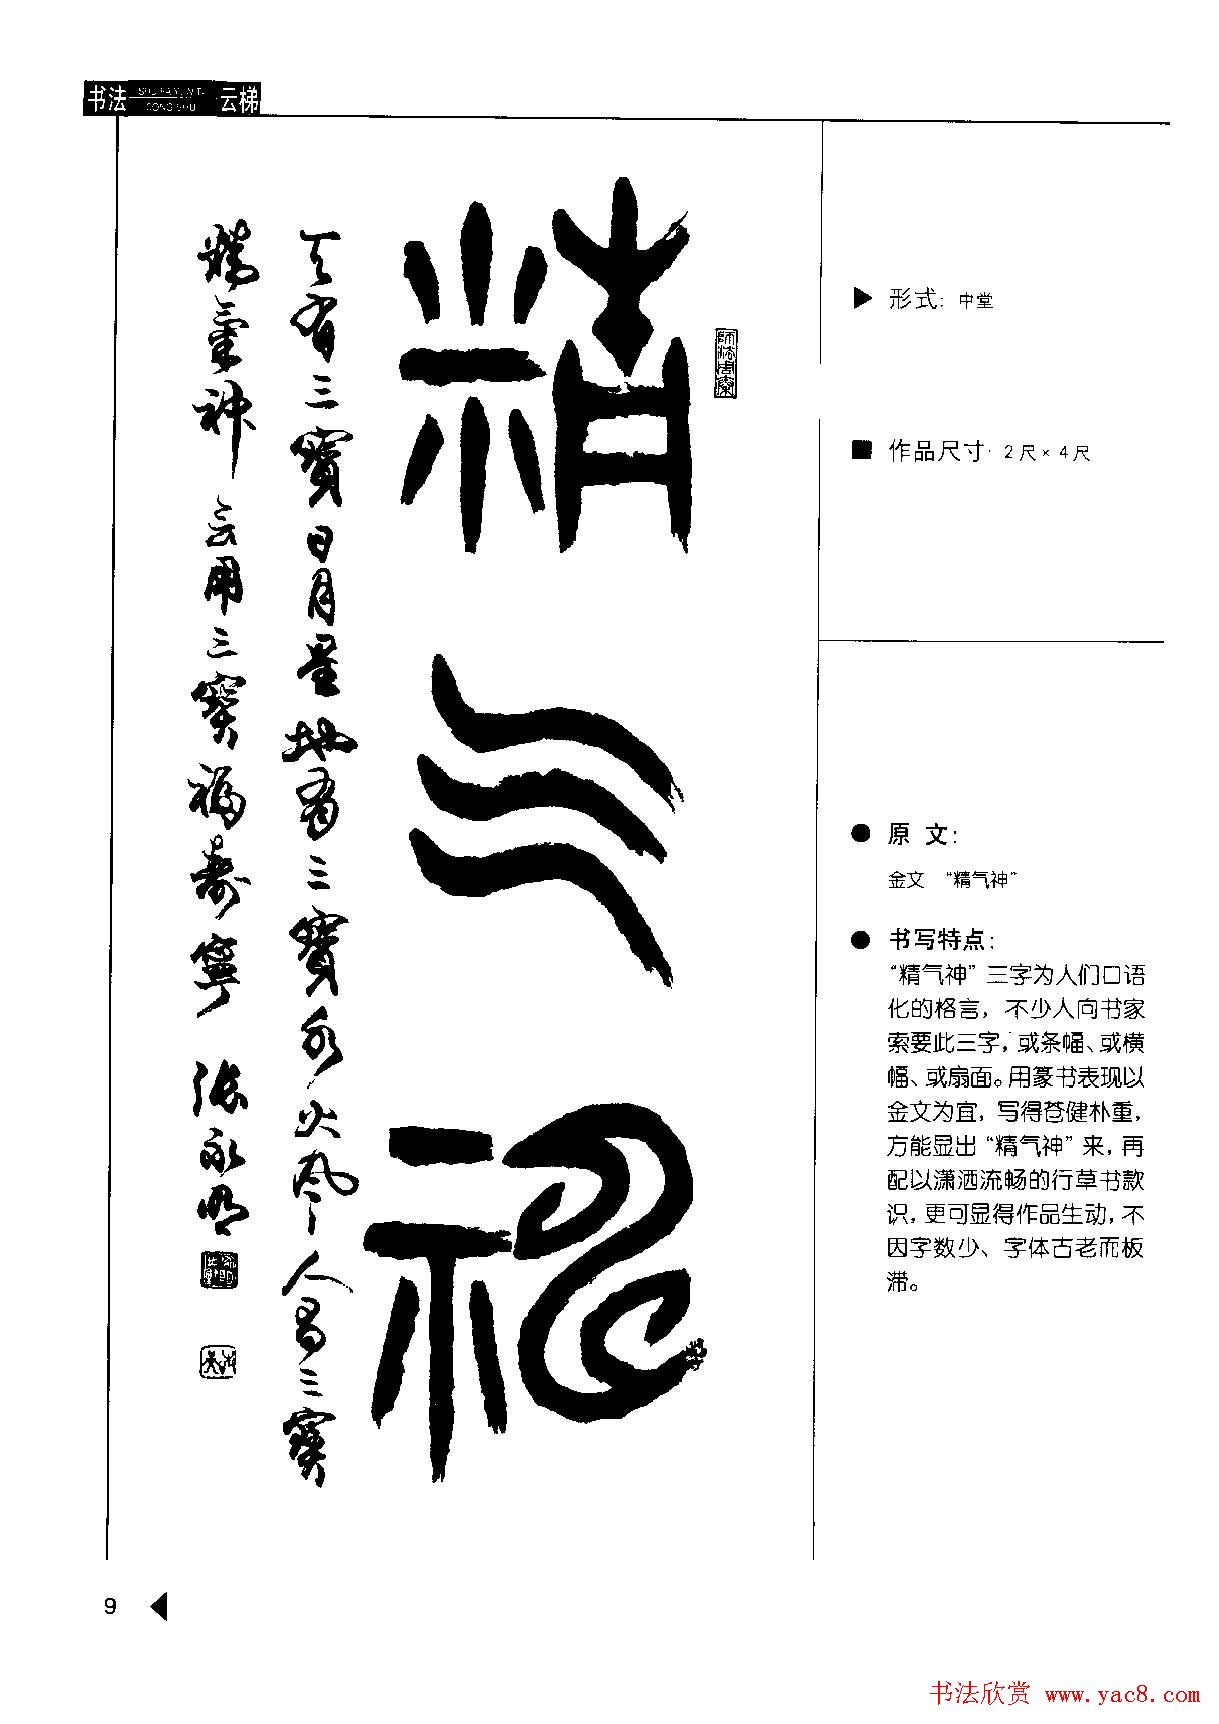 书法 SHU FA YUN TI CONG SHU 云梯
精气神
天有三寶日月星地有三寶水火風人有三寶
精氣神 用三寶福壽寧 张永明
▶ 形式：中堂
■ 作品尺寸：2尺×4尺
● 原 文：
金文 “精气神”
● 书写特点：
“精气神”三字为人们口语
化的格言，不少人向书家
索要此三字，或条幅、或横
幅、或扇面。用篆书表现以
金文为宜，写得苍健朴重，
方能显出“精气神”来，再
配以潇洒流畅的行草书款
识，更可显得作品生动，不
因字数少、字体古老而板
滞。
9
书法欣赏 www.yac8.com